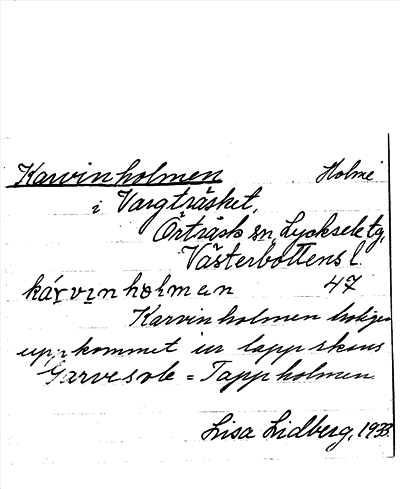 Karvinholmen Holme
i Vargträsket,
Örträsk sn, Lycksele tg,
Västerbottens l.
kárvinholmen 47
Karvinholmen troligen
uppkommet ur lappskans
= Tappholmen.
Lisa Lidberg, 1933.